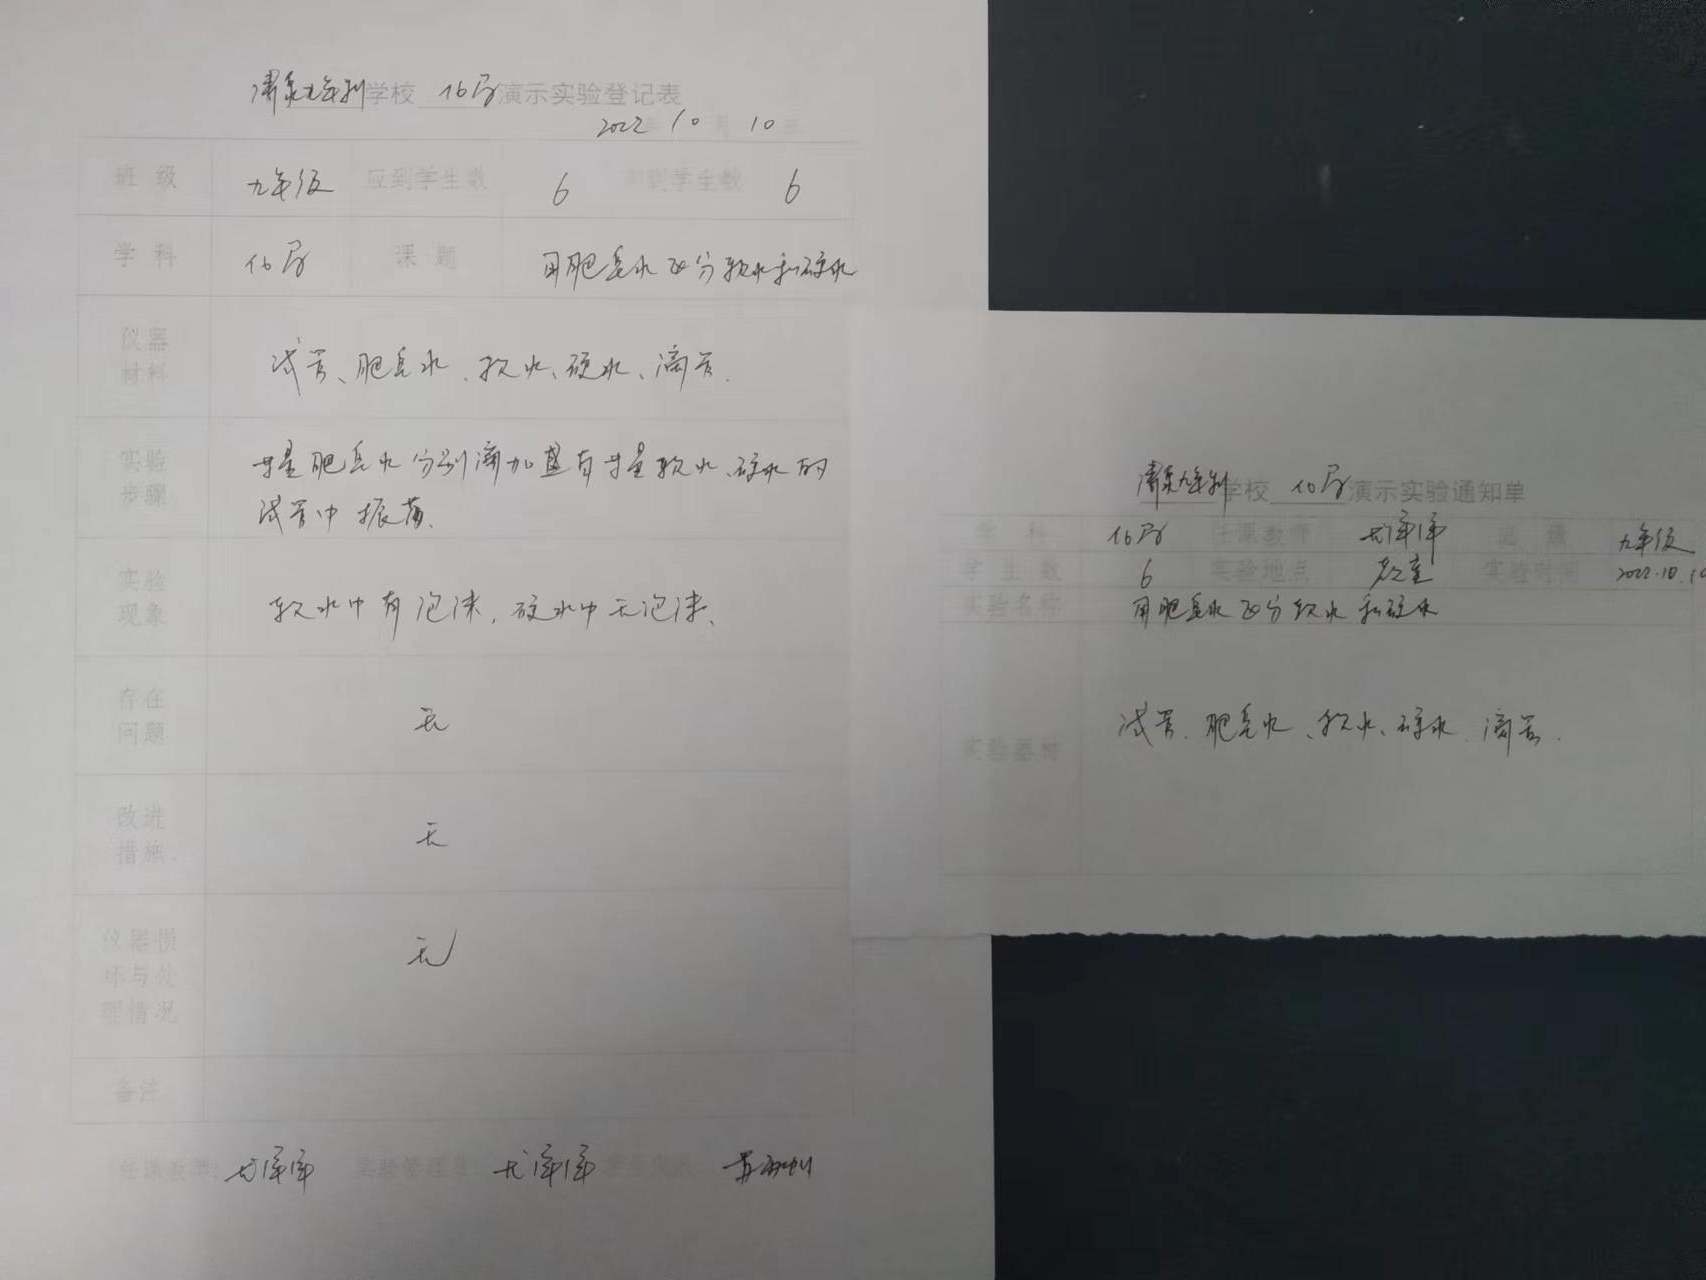 清泉九年制学校 化学 演示实验登记表
2022年10月10日
班级 九年级 应到学生数 6 实到学生数 6
学科 化学 课题 用肥皂水区分软水和硬水
仪器材料 试管、肥皂水、软水、硬水、滴管.
实验步骤 少量肥皂水分别滴加盛有少量软水、硬水的
试管中振荡.
实验现象 软水中有泡沫,硬水中无泡沫.
存在问题 无
改进措施 无
仪器损坏与处理情况 无
备注
任课教师: 实验管理员 学生代表
清泉九年制学校 化学 演示实验通知单
学科 化学 任课教师 班级 九年级
学生数 6 实验地点 教室 实验时间 2022.10.10
实验名称 用肥皂水区分软水和硬水
实验器材 试管、肥皂水、软水、硬水、滴管.